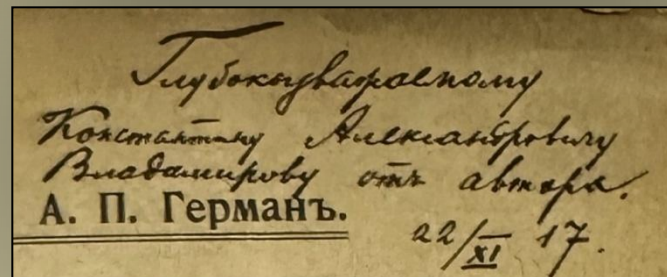 Глубокоуважаемому
Константину Александровичу
Владимирову отъ автора.
А. П. Германъ.
22/XI 17.